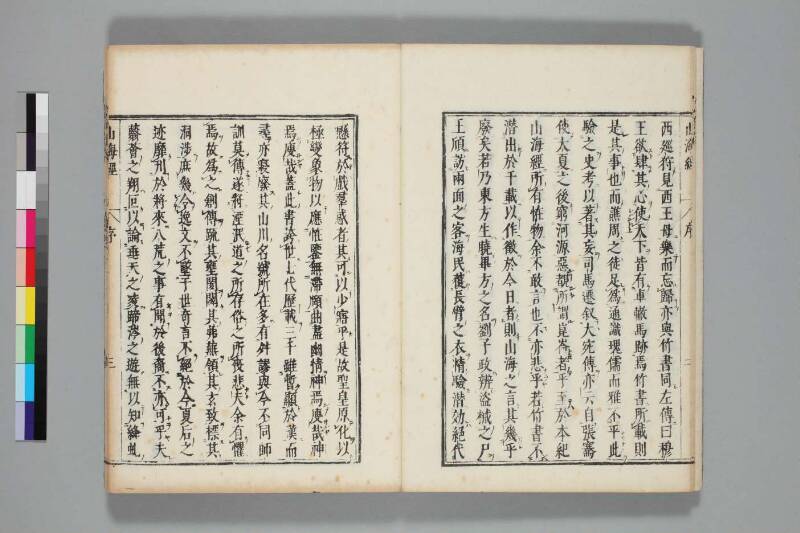 山海經 序 二
西廵狩見西王母樂而忘歸亦與竹書同左傳曰穆
王欲肆其心使天下皆有車轍馬跡焉竹書所載則
是其事也而譙周之徒足為通識瑰儒而雅不平此
驗之史考以著其妄司馬遷叙大宛傳亦云自張騫
使大夏之後窮河源惡覩所謂崑崙者乎至於本紀
山海經所有怪物余不敢言也不亦悲乎若竹書不
潛出於千載以作徵於今日者則山海之言其幾乎
廢矣若乃東方生曉畢方之名劉子政辨盜械之尸
王頎訪兩面之客海民獲長臂之衣精驗潛効絕代
懸符於戲羣惑者其可以少寤乎是故聖皇原化以
極變象物以應怪鑒無滯賾曲盡幽情神焉廋哉神
焉廋哉盖此書跨世七代歷載三千雖暫顯於漢而
尋亦寢廢其山川名號所在多有舛謬與今不同師
訓莫傳遂將湮泯道之所存俗之所喪悲夫余有懼
焉故為之創傳疏其壅閡闢其茀蕪領其玄致標其
洞涉庶幾令逸文不墜于世奇言不絕於今夏后之
迹靡刋於將來八荒之事有聞於後裔不亦可乎夫
蘙薈之翔叵以論垂天之凌蹏涔之遊無以知絳虬
山海經 序 三